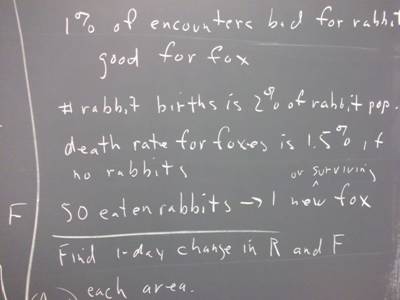 1% of encounters bad for rabbit
good for fox
# rabbit births is 2% of rabbit pop.
death rate for foxes is 1.5% if
no rabbits
or surviving
F 50 eaten rabbits → 1 new fox
Find 1-day change in R and F
each area.